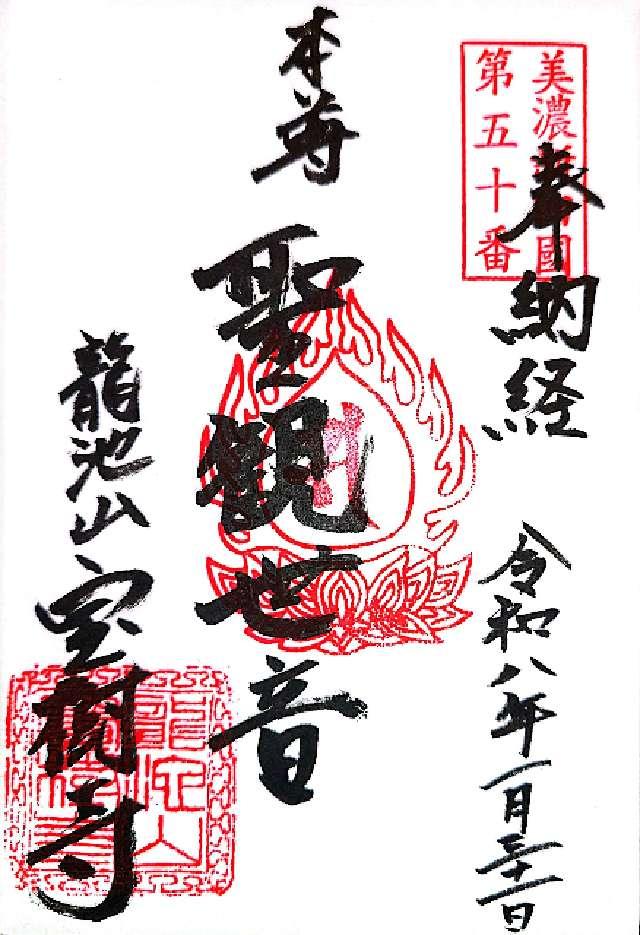 美濃新四國
第五十番
奉納経
令和八年一月三十一日
本尊
聖観世音
龍池山宝樹寺